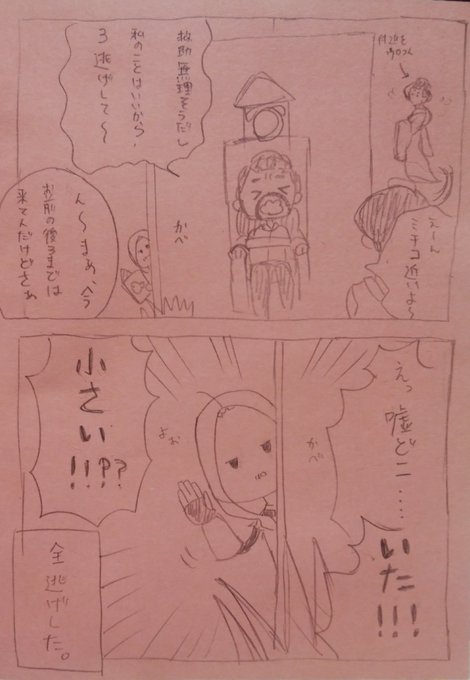 付近を
うろつく
えーん
ミチコ近いよ〜
救助無理そうだし
私のことはいいから、
3逃げして〜
かべ
ん〜まぁ、今
お前の後ろまでは
来てんだけどさぁ
えっ
嘘どこ……
いた!!!
かべ
よぉ
小さい!!!??
全逃げした。